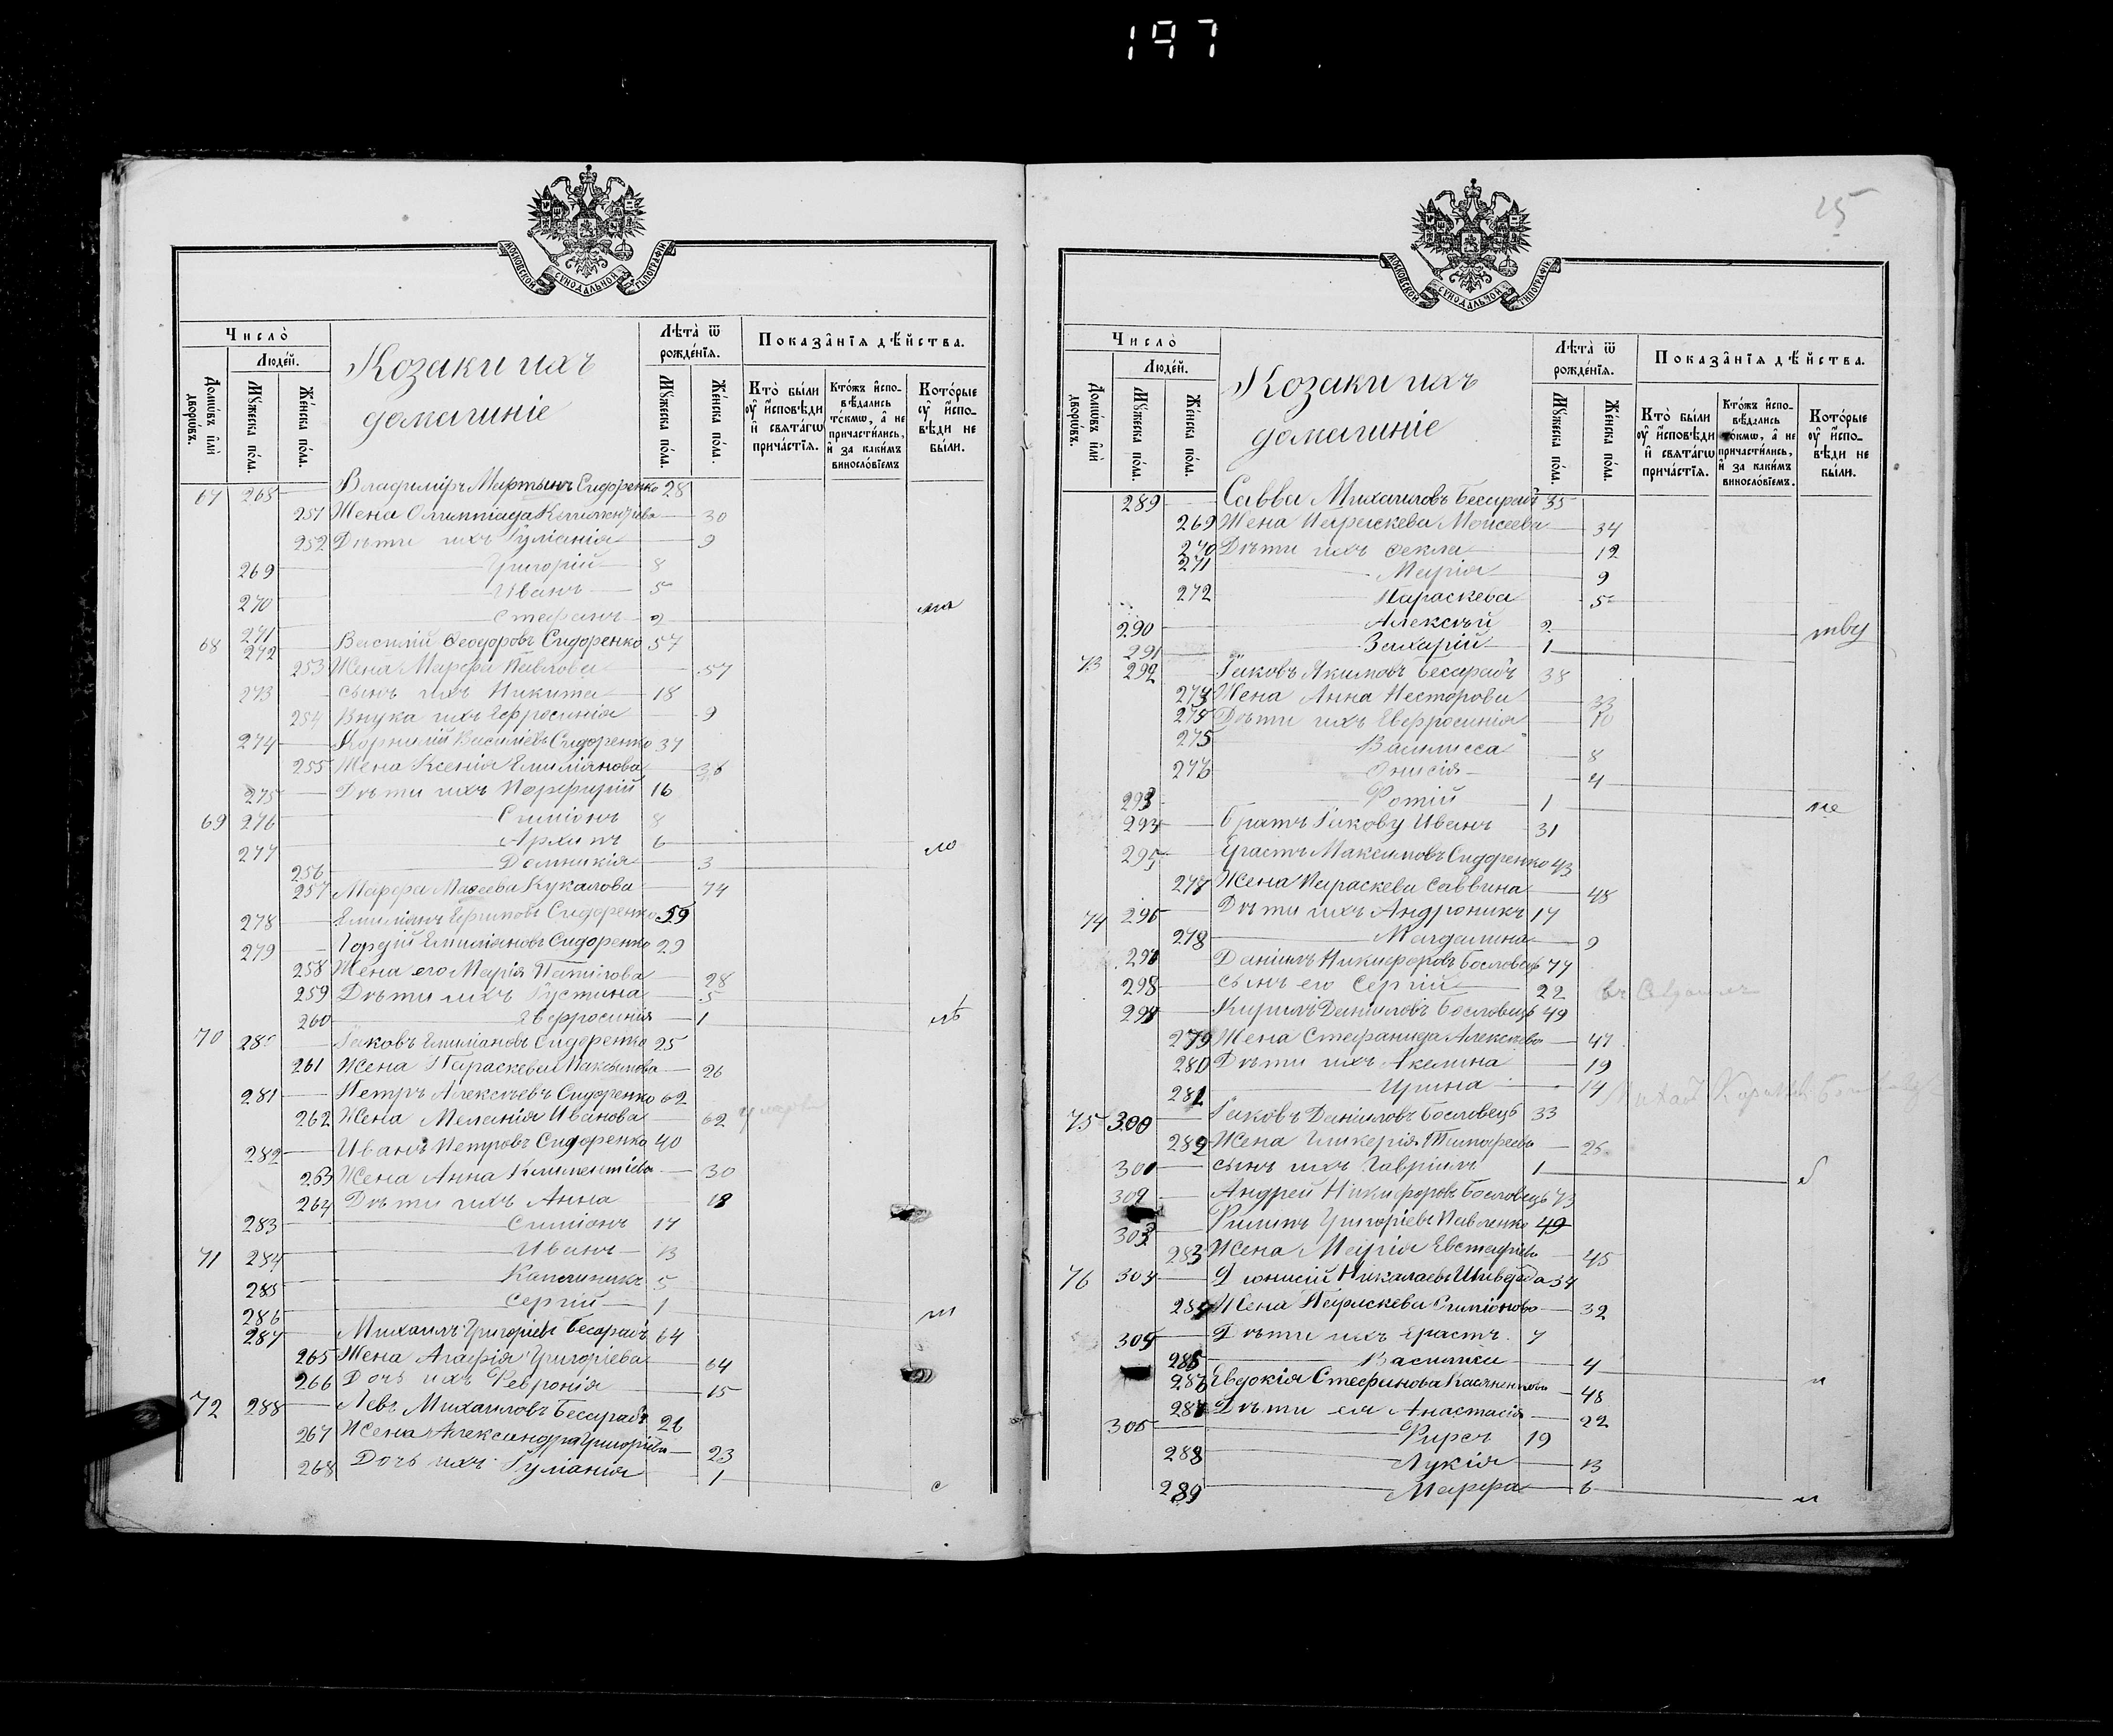 197
25
МОСКОВСКОЙ СУНОДАЛЬНОЙ ТІПОГРАФІИ
Число
Людей.
Домѡвъ или дворѡвъ.
Мꙋжеска пола.
Женска пола.
Козаки ихъ
домашніе
Лѣта ѿ рожденїѧ.
Мꙋжеска пола.
Женска пола.
Показанїѧ дѣйства.
Кто были ᲂу исповѣди и свѧтагѡ причастїѧ.
Ктожъ исповѣдались токмѡ, а не причастились, и за какимъ винословїемъ
Которые ᲂу исповѣди не были.
67 268 Владиміръ Мартынъ Сидоренко 28
251 Жена Олимпіада Климентіева 30
252 Дѣти ихъ Іуліанія 9
269 Григорій 8
270 Иванъ 5
271 Стефанъ 2
68 272 Василій Ѳеодоровъ Сидоренко 57
253 Жена Марфа Павлова 57
273 сынъ ихъ Никита 18
254 Внука ихъ Ефросинія 9
274 Корнилій Василіевъ Сидоренко 37
255 Жена Ксенія Емиліанова 36
275 Дѣти ихъ Порфирій 16
69 276 Симіонъ 8
277 Архипъ 6
256 Домникія 3
257 Марфа Маѳеева Кукалова 74
278 Емиліанъ Ефимовъ Сидоренко 59
279 Гордій Емиліановъ Сидоренко 29
258 Жена его Марія 28
259 Дѣти ихъ Іустина 5
260 Евфросинія 1
70 280 Іаковъ Емиліановъ Сидоренко 25
261 Жена Параскева Максимова 26
281 Петръ Алексѣевъ Сидоренко 62
262 Жена Меланія Иванова 62
282 Иванъ Петровъ Сидоренко 40
263 Жена Анна Климентіева 30
264 Дѣти ихъ Анна 18
283 Симіонъ 17
71 284 Иванъ 13
285 5
286 Сергій 1
287 Михаилъ Григоріевъ Бесарабъ 64
265 Жена Агафія Григоріева 64
266 Дочь ихъ Февронія 15
72 288 Левъ Михаиловъ Бесарабъ 26
267 Жена Александра Григоріева 23
268 Дочь ихъ Іуліанія 1
МОСКОВСКОЙ СУНОДАЛЬНОЙ ТІПОГРАФІИ
Число
Людей.
Домѡвъ или дворѡвъ.
Мꙋжеска пола.
Женска пола.
Козаки ихъ
домашніе
Лѣта ѿ рожденїѧ.
Мꙋжеска пола.
Женска пола.
Показанїѧ дѣйства.
Кто были ᲂу исповѣди и свѧтагѡ причастїѧ.
Ктожъ исповѣдались токмѡ, а не причастились, и за какимъ винословїемъ.
Которые ᲂу исповѣди не были.
289 Савва Михаиловъ Бесарабъ 35
269 Жена Параскева Моисеева 34
270 Дѣти ихъ Ѳекла 12
271 Марія 9
272 Параскева 5
290 Алексѣй 2
291 Захарій 1
73 292 Іаковъ Якимовъ Бесарабъ 38
273 Жена Анна Несторова 33
Дѣти ихъ Евфросинія 10
275 Василисса 8
276 Онисія 4
293 Фотій 1
294 братъ Іакову Иванъ 31
295 Ерастъ Максимовъ Сидоренко 43
277 Жена Параскева Саввина 48
74 296 Дѣти ихъ Андроникъ 17
278 Магдалина 9
297 Даніилъ Никифоровъ Бословецъ 77
298 сынъ его Сергій 22
299 Кирилъ Даніиловъ Бословецъ 49
279 Жена Стефанида Алексѣева 47
280 Дѣти ихъ Акелина 19
281 Ирина 14
75 300 Іаковъ Даніиловъ Бословецъ 33
282 Жена Гликерія Тимофеева 25
301 сынъ ихъ Гавріилъ 1
302 Андрей Никифоровъ Бословецъ 73
303 Филипъ Григоріевъ Павленко 49
283 Жена Марія Евстафіева 45
76 304 Діонисій Николаевъ Шивдеба 34
284 Жена Параскева Симіонова 32
305 Дѣти ихъ Ерастъ 7
285 4
286 Евдокія Стефанова 48
287 Дѣти ея Анастасія 22
306 Фирсъ 19
288 Лукія 13
289 Марфа 6